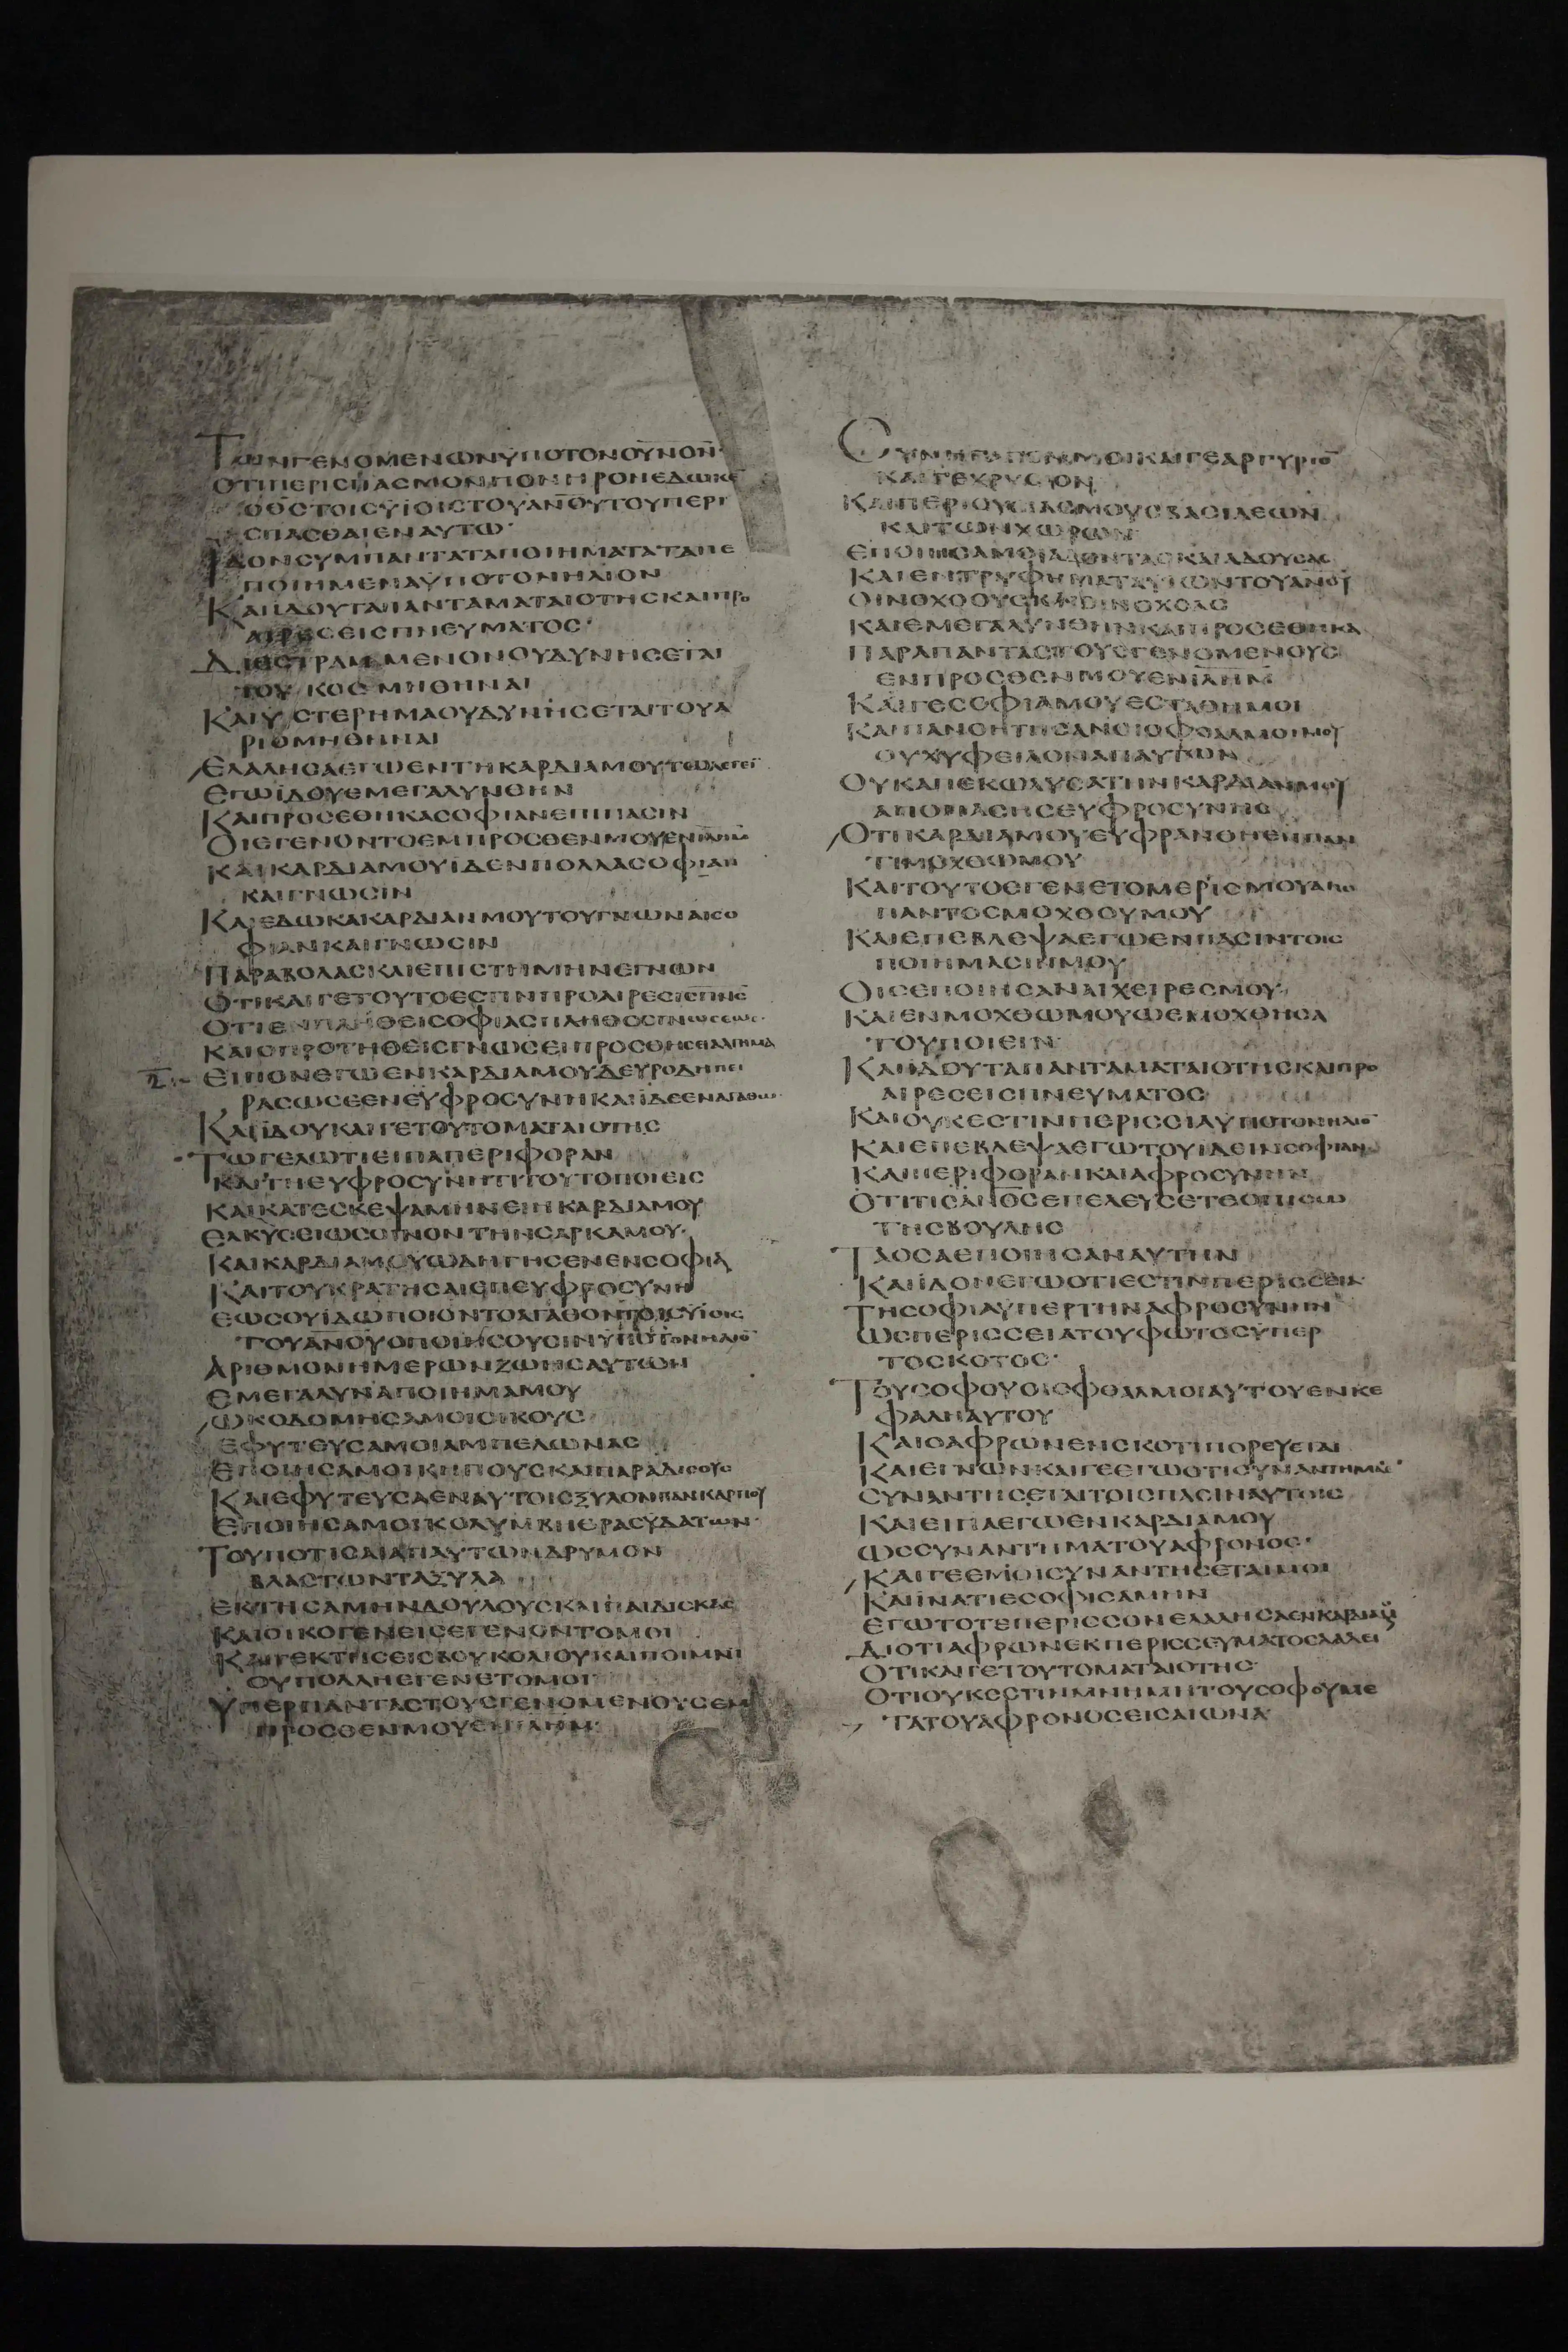 ΤωΝΓΕΝΟΜΕΝωΝΥΠΟΤΟΝΟΥΝΟΝ
ΟΤΙΠΕΡΙCΠΑCΜΟΝΠΟΝΗΡΟΝΕΔωΚΕ
ΟΘCΤΟΙCΥΪΟΙCΤΟΥΑΝΟΥΤΟΥΠΕΡΙ
CΠΑCΘΑΙΕΝΑΥΤω·
ΪΔΟΝCΥΜΠΑΝΤΑΤΑΠΟΙΗΜΑΤΑΤΑΠΕ
ΠΟΙΗΜΕΝΑΥΠΟΤΟΝΗΛΙΟΝ
ΚΑΙΙΔΟΥΤΑΠΑΝΤΑΜΑΤΑΙΟΤΗCΚΑΙΠΡΟ
ΑΙΡΕCΕΙCΠΝΕΥΜΑΤΟC·
ΔΙΕCΤΡΑΜΜΕΝΟΝΟΥΔΥΝΗCΕΤΑΙ
ΤΟΥ ΚΟCΜΗΘΗΝΑΙ
ΚΑΙΥCΤΕΡΗΜΑΟΥΔΥΝΗCΕΤΑΙΤΟΥΑ
ΡΙΘΜΗΘΗΝΑΙ
ΕΛΑΛΗCΑΕΓωΕΝΤΗΚΑΡΔΙΑΜΟΥΤωΛΕΓΕΙ
ΕΓωΪΔΟΥΕΜΕΓΑΛΥΝΘΗΝ
ΚΑΙΠΡΟCΕΘΗΚΑCΟΦΙΑΝΕΠΙΠΑCΙΝ
ΟΙΕΓΕΝΟΝΤΟΕΜΠΡΟCΘΕΝΜΟΥΕΝΙΛΗΜ
ΚΑΙΚΑΡΔΙΑΜΟΥΪΔΕΝΠΟΛΛΑCΟΦΙΑΝ
ΚΑΙΓΝωCΙΝ
ΚΑΙΕΔωΚΑΚΑΡΔΙΑΝΜΟΥΤΟΥΓΝωΝΑΙCΟ
ΦΙΑΝΚΑΙΓΝωCΙΝ
ΠΑΡΑΒΟΛΑCΚΑΙΕΠΙCΤΗΜΗΝΕΓΝωΝ
ΟΤΙΚΑΙΓΕΤΟΥΤΟΕCΤΙΝΠΡΟΑΙΡΕCΙCΠΝC
ΟΤΙΕΝΠΛΗΘΕΙCΟΦΙΑCΠΛΗΘΟCΓΝωCΕωC·
ΚΑΙΟΠΡΟΤΗΘΕΙCΓΝωCΕΙΠΡΟCΘΗCΕΙΑΛΓΗΜΑ
Β ΕΙΠΟΝΕΓωΕΝΚΑΡΔΙΑΜΟΥΔΕΥΡΟΔΗΠΕΙ
ΡΑCωCΕΕΝΕΥΦΡΟCΥΝΗΚΑΙΪΔΕΕΝΑΓΑΘω·
ΚΑΙΪΔΟΥΚΑΙΓΕΤΟΥΤΟΜΑΤΑΙΟΤΗC
ΤωΓΕΛωΤΙΕΙΠΑΠΕΡΙΦΟΡΑΝ
ΚΑΙΤΗΕΥΦΡΟCΥΝΗΤΙΤΟΥΤΟΠΟΙΕΙC
ΚΑΙΚΑΤΕCΚΕΨΑΜΗΝΕΙΗΚΑΡΔΙΑΜΟΥ
ΕΛΚΥCΕΙωCΟΙΝΟΝΤΗΝCΑΡΚΑΜΟΥ·
ΚΑΙΚΑΡΔΙΑΜΟΥωΔΗΓΗCΕΝΕΝCΟΦΙΑ
ΚΑΙΤΟΥΚΡΑΤΗCΑΙΕΠΕΥΦΡΟCΥΝΗ
ΕωCΟΥΪΔωΠΟΙΟΝΤΟΑΓΑΘΟΝΤΟΙCΥΪΟΙC
ΤΟΥΑΝΟΥΟΠΟΙΗCΟΥCΙΝΥΠΟΤΟΝΗΛΙΟ
ΑΡΙΘΜΟΝΗΜΕΡωΝΖωΗCΑΥΤωΝ
ΕΜΕΓΑΛΥΝΑΠΟΙΗΜΑΜΟΥ
ωΚΟΔΟΜΗCΑΜΟΙΟΙΚΟΥC
ΕΦΥΤΕΥCΑΜΟΙΑΜΠΕΛωΝΑC
ΕΠΟΙΗCΑΜΟΙΚΗΠΟΥCΚΑΙΠΑΡΑΔΙCΟΥC
ΚΑΙΕΦΥΤΕΥCΑΕΝΑΥΤΟΙCΞΥΛΟΝΠΑΝΚΑΡΠΟΥ
ΕΠΟΙΗCΑΜΟΙΚΟΛΥΜΒΗΘΡΑCΥΔΑΤωΝ·
ΤΟΥΠΟΤΙCΑΙΑΠΑΥΤωΝΔΡΥΜΟΝ
ΒΛΑCΤωΝΤΑΞΥΛΑ
ΕΚΤΗCΑΜΗΝΔΟΥΛΟΥCΚΑΙΠΑΙΔΙCΚΑC
ΚΑΙΟΙΚΟΓΕΝΕΙCΕΓΕΝΟΝΤΟΜΟΙ
ΚΑΙΓΕΚΤΗCΕΙCΒΟΥΚΟΛΙΟΥΚΑΙΠΟΙΜΝΙ
ΟΥΠΟΛΛΗΕΓΕΝΕΤΟΜΟΙ
ΥΠΕΡΠΑΝΤΑCΤΟΥCΓΕΝΟΜΕΝΟΥCΕΜ
ΠΡΟCΘΕΝΜΟΥΕΝΙΛΗΜ·
CΥΝΗΓΑΓΟΝΜΟΙΚΑΙΓΕΑΡΓΥΡΙΟ
ΚΑΙΓΕΧΡΥCΙΟΝ
ΚΑΙΠΕΡΙΟΥCΙΑCΜΟΥCΒΑCΙΛΕωΝ
ΚΑΙΤωΝΧωΡωΝ
ΕΠΟΙΗCΑΜΟΙΑΔΟΝΤΑCΚΑΙΑΔΟΥCΑC
ΚΑΙΕΝΤΡΥΦΗΜΑΤΑΥΪωΝΤΟΥΑΝΟΥ
ΟΙΝΟΧΟΟΥCΚΑΙΟΙΝΟΧΟΑC
ΚΑΙΕΜΕΓΑΛΥΝΘΗΝΚΑΙΠΡΟCΕΘΗΚΑ
ΠΑΡΑΠΑΝΤΑCΤΟΥCΓΕΝΟΜΕΝΟΥC
ΕΝΠΡΟCΘΕΝΜΟΥΕΝΙΛΗΜ
ΚΑΙΓΕCΟΦΙΑΜΟΥΕCΤΑΘΗΜΟΙ
ΚΑΙΠΑΝΟΗΤΗCΑΝΟΙΟΦΘΑΛΜΟΙΜΟΥ
ΟΥΧΥΦΕΙΛΟΝΑΠΑΥΤωΝ
ΟΥΚΑΠΕΚωΛΥCΑΤΗΝΚΑΡΔΙΑΝΜΟΥ
ΑΠΟΠΑCΗCΕΥΦΡΟCΥΝΗC
ΟΤΙΚΑΡΔΙΑΜΟΥΕΥΦΡΑΝΘΗΕΝΠΑΝ
ΤΙΜΟΧΘωΜΟΥ
ΚΑΙΤΟΥΤΟΕΓΕΝΕΤΟΜΕΡΙCΜΟΥΑΠΟ
ΠΑΝΤΟCΜΟΧΘΟΥΜΟΥ
ΚΑΙΕΠΕΒΛΕΨΑΕΓωΕΝΠΑCΙΝΤΟΙC
ΠΟΙΗΜΑCΙΝΜΟΥ
ΟΙCΕΠΟΙΗCΑΝΑΙΧΕΙΡΕCΜΟΥ·
ΚΑΙΕΝΜΟΧΘωΜΟΥωΕΜΟΧΘΗCΑ
ΤΟΥΠΟΙΕΙΝ
ΚΑΙΙΔΟΥΤΑΠΑΝΤΑΜΑΤΑΙΟΤΗCΚΑΙΠΡΟ
ΑΙΡΕCΕΙCΠΝΕΥΜΑΤΟC
ΚΑΙΟΥΚΕCΤΙΝΠΕΡΙCCΙΑΥΠΟΤΟΝΗΛΙΟ
ΚΑΙΕΠΕΒΛΕΨΑΕΓωΤΟΥΙΔΕΙΝCΟΦΙΑΝ
ΚΑΙΠΕΡΙΦΟΡΑΝΚΑΙΑΦΡΟCΥΝΗΝ
ΟΤΙΤΙCΑΝΟCΕΠΕΛΕΥCΕΤΕΟΠΙCω
ΤΗCΒΟΥΛΗC
ΤΑΟCΑΕΠΟΙΗCΑΝΑΥΤΗΝ
ΚΑΙΪΔΟΝΕΓωΟΤΙΕCΤΙΝΠΕΡΙCCΕΙΑ
ΤΗCΟΦΙΑΥΠΕΡΤΗΝΑΦΡΟCΥΝΗΝ
ωCΠΕΡΙCCΕΙΑΤΟΥΦωΤΟCΥΠΕΡ
ΤΟCΚΟΤΟC·
ΤΟΥCΟΦΟΥΟΙΟΦΘΑΛΜΟΙΑΥΤΟΥΕΝΚΕ
ΦΑΛΗΑΥΤΟΥ
ΚΑΙΟΑΦΡωΝΕΝCΚΟΤΙΠΟΡΕΥΕΤΑΙ
ΚΑΙΕΓΝωΝΚΑΙΓΕΕΓωΟΤΙCΥΝΑΝΤΗΜΑ
CΥΝΑΝΤΗCΕΤΑΙΤΟΙCΠΑCΙΝΑΥΤΟΙC
ΚΑΙΕΙΠΑΕΓωΕΝΚΑΡΔΙΑΜΟΥ
ωCCΥΝΑΝΤΗΜΑΤΟΥΑΦΡΟΝΟC·
ΚΑΙΓΕΕΜΟΙCΥΝΑΝΤΗCΕΤΑΙΜΟΙ
ΚΑΙΪΝΑΤΙΕCΟΦΙCΑΜΗΝ
ΕΓωΤΟΤΕΠΕΡΙCCΟΝΕΛΑΛΗCΑΕΝΚΑΡΔΙΑΜΟΥ
ΔΙΟΤΙΑΦΡωΝΕΚΠΕΡΙCCΕΥΜΑΤΟCΛΑΛΕΙ
ΟΤΙΚΑΙΓΕΤΟΥΤΟΜΑΤΑΙΟΤΗC·
ΟΤΙΟΥΚΕCΤΙΝΜΝΗΜΗΤΟΥCΟΦΟΥΜΕ
ΤΑΤΟΥΑΦΡΟΝΟCΕΙCΑΙωΝΑ